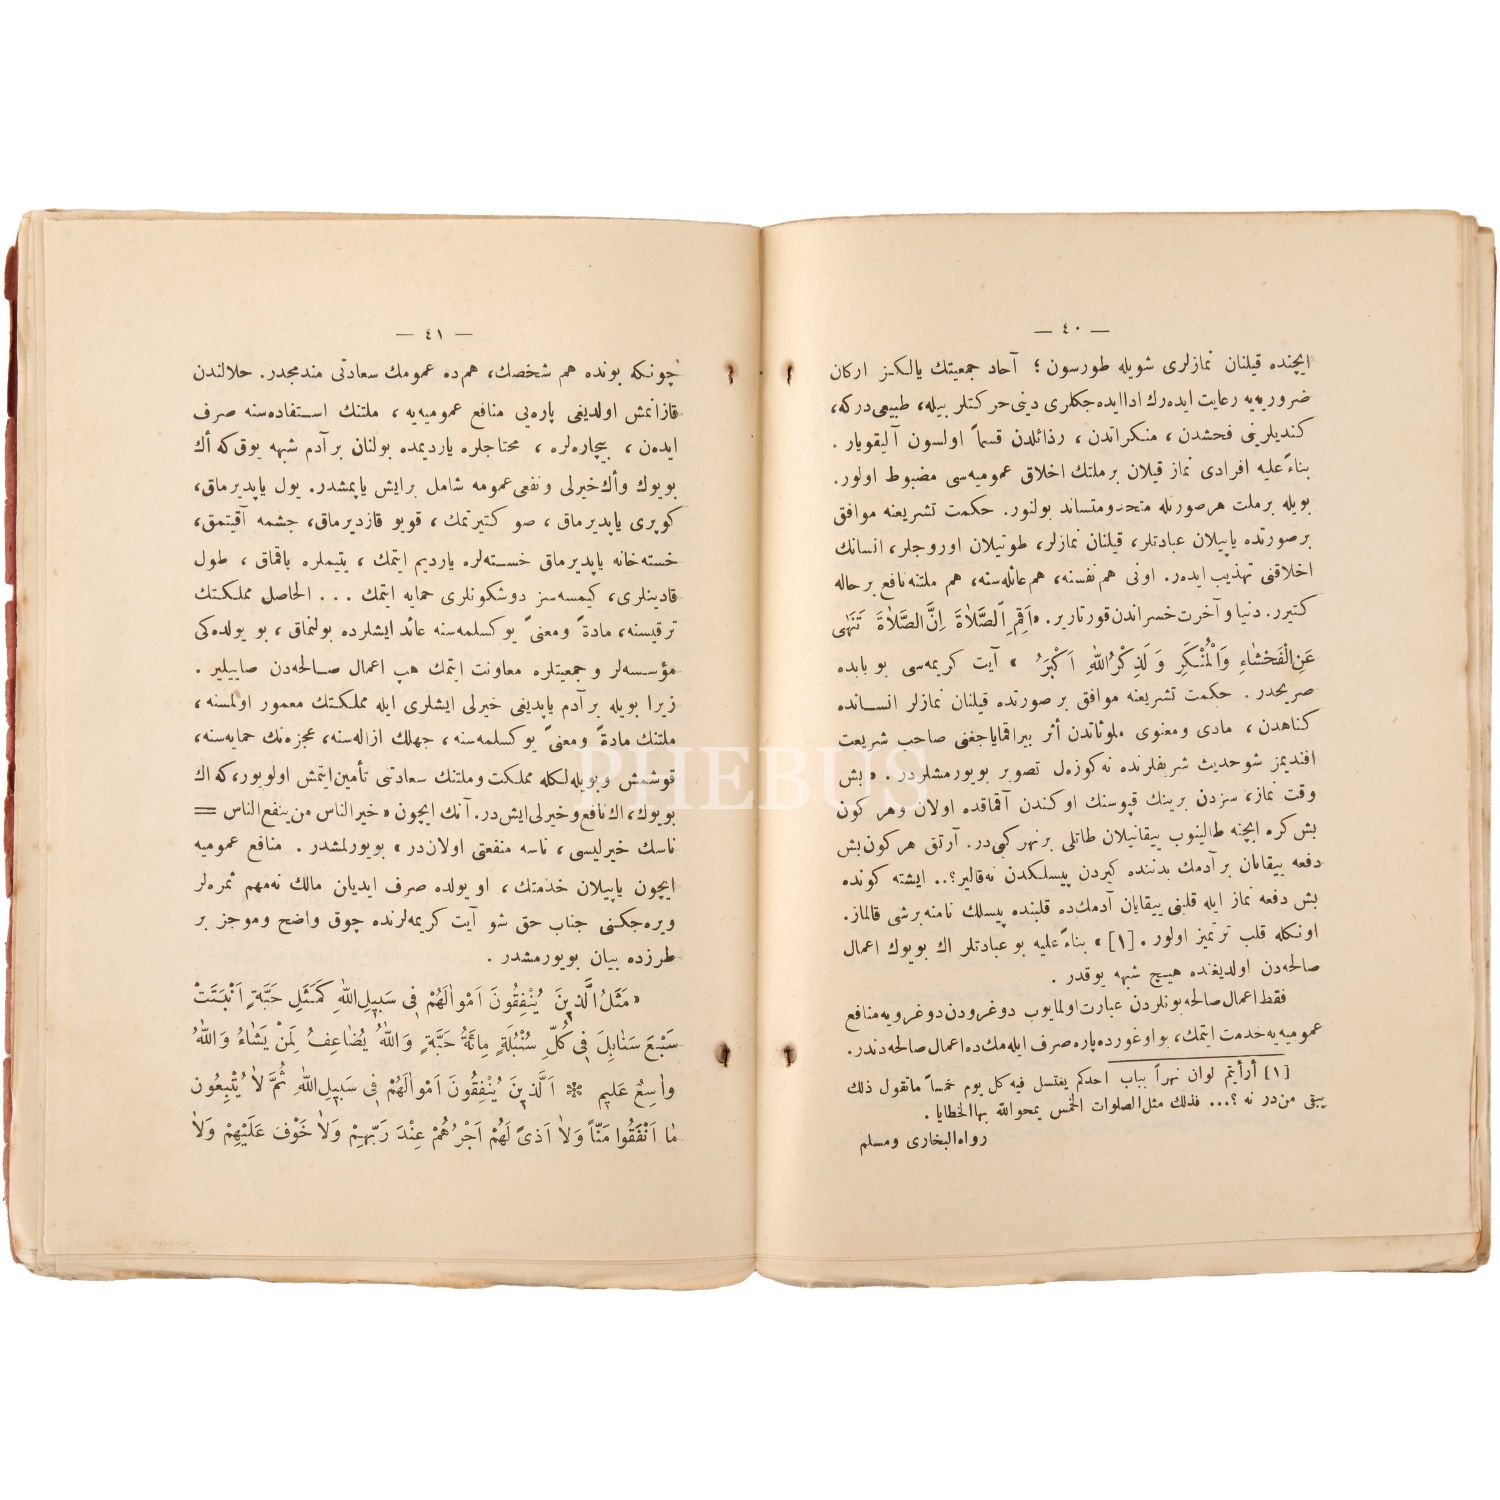 — ٤٠ —
ایچنده قیلنان نمازلری شویله طورسون؛ آحاد جمعیتك یالكز ارکان
ضروریه‌یه رعایت ایده‌رك ادا ایده‌جکلری دینی حرکتلر بیله، طبیعی درکه،
کندیلرینی فحشدن، منکراتدن، رذائلدن قسماً اولسون آلیقویار.
بناءً علیه افرادی نماز قیلان بر ملتك اخلاق عمومیه‌سی مضبوط اولور.
بویله بر ملت هر صورتله متحد و متساند بولنور. حکمت تشریعنه موافق
بر صورتده یاپیلان عبادتلر، قیلنان نمازلر، طوتیلان اوروجلر، انسانك
اخلاقنی تهذیب ایدر. اونی هم نفسنه، هم عائله‌سنه، هم ملتنه نافع بر حاله
کتیرر. دنیا و آخرت خسراندن قورتاریر. «اَقِمِ الصَّلٰاةَ اِنَّ الصَّلٰاةَ تَنْهٰى
عَنِ الْفَحْشٰاءِ وَالْمُنْكَرِ وَ لَذِكْرُ اللهِ اَكْبَرُ» آیت کریمه‌سی بو بابده
صریحدر. حکمت تشریعنه موافق بر صورتده قیلنان نمازلر انسانده
کناهدن، مادی و معنوی ملوثاتدن أثر بیراقمایاجغنی صاحب شریعت
افندیمز شو حدیث شریفلرنده نه کوزه‌ل تصویر بویورمشلردر. «بش
وقت نماز، سزدن برینك قپوسنك اوکندن آقماقده اولان و هر کون
بش کره ایچنه طالینوب ییقانیلان طاتلی بر نهر کبی‌در. آرتق هر کون بش
دفعه ییقانان بر آدمك بدننده کیردن پیسلکدن نه قالیر؟.. ایشته کونده
بش دفعه نماز ایله قلبنی ییقایان آدمك ده قلبنده پیسلك نامنه بر شی قالماز.
اونکله قلب ترتمیز اولور. [١]» بناءً علیه بو عبادتلر اك بویوك اعمال
صالحه‌دن اولدیغنده هیچ شبهه یوقدر.
فقط اعمال صالحه بونلردن عبارت اولمایوب دوغرودن دوغرویه منافع
عمومیه‌یه خدمت ایتمك، بو اوغورده پاره صرف ایله‌مك ده اعمال صالحه‌دندر.
[١] أرأیتم لوان نهراً بباب احدکم یغتسل فیه کل یوم خمساً ماتقول ذلك
یبقی من در نه ؟... فذلك مثل الصلوات الخمس یمحو الله بها الخطایا.
رواه البخاری و مسلم
— ٤١ —
چونکه بونده هم شخصك، هم ده عمومك سعادتی مندمجدر. حلالندن
قازانمش اولدیغی پاره‌یی منافع عمومیه‌یه، ملتنك استفاده‌سنه صرف
ایده‌ن، بیچاره‌لره، محتاجلره یاردیمده بولنان بر آدم شبهه یوق که أك
بویوك و أك خیرلی و نفعی عمومه شامل بر ایش یاپمشدر. یول یاپدیرماق،
کوپری یاپدیرماق، صو کتیرتمك، قویو قازدیرماق، چشمه آقیتمق،
خسته‌خانه یاپدیرماق خسته‌لره یاردیم ایتمك، یتیملره باقماق، طول
قادینلری، کیمسه‌سز دوشکونلری حمایه ایتمك ... الحاصل مملکتك
ترقیسنه، مادةً و معنیً یوکسلمه‌سنه عائد ایشلرده بولنماق، بو یولده‌کی
مؤسسه‌لر و جمعیتلره معاونت ایتمك هپ اعمال صالحه‌دن صاییلیر.
زیرا بویله بر آدم یاپدیغی خیرلی ایشلری ایله مملکتك معمور اولمسنه،
ملتنك مادةً و معنیً یوکسلمه‌سنه، جهلك ازاله‌سنه، عجزه‌نك حمایه‌سنه،
قوشمش و بویله‌لکله مملکت و ملتنك سعادتنی تأمین ایتمش اولویور، که اك
بویوك، اك نافع و خیرلی ایش‌در. آنك ایچون «خیر الناس من ینفع الناس =
ناسك خیرلیسی، ناسه منفعتی اولان‌در» بویورلمشدر. منافع عمومیه
ایچون یاپیلان خدمتك، او یولده صرف ایدیان مالك نه مهم ثمره‌لر
ویره‌جکنی جناب حق شو آیت کریمه‌لرنده چوق واضح و موجز بر
طرزده بیان بویورمشدر.
«مَثَلُ الَّذ۪ينَ يُنْفِقُونَ اَمْوٰالَهُمْ ف۪ي سَب۪يلِ اللهِ كَمَثَلِ حَبَّةٍ اَنْبَتَتْ
سَبْعَ سَنٰابِلَ ف۪ي كُلِّ سُنْبُلَةٍ مِائَةُ حَبَّةٍ وَاللهُ يُضٰاعِفُ لِمَنْ يَشٰاءُ وَاللهُ
وٰاسِعٌ عَل۪يم * اَلَّذ۪ينَ يُنْفِقُونَ اَمْوٰالَهُمْ ف۪ي سَب۪يلِ اللهِ ثُمَّ لاٰ يُتْبِعُونَ
مٰا اَنْفَقُوا مَنّاً وَلاٰ اَذىً لَهُمْ اَجْرُهُمْ عِنْدَ رَبِّهِمْ وَلاٰ خَوْفٌ عَلَيْهِمْ وَلاٰ
PHEBUS